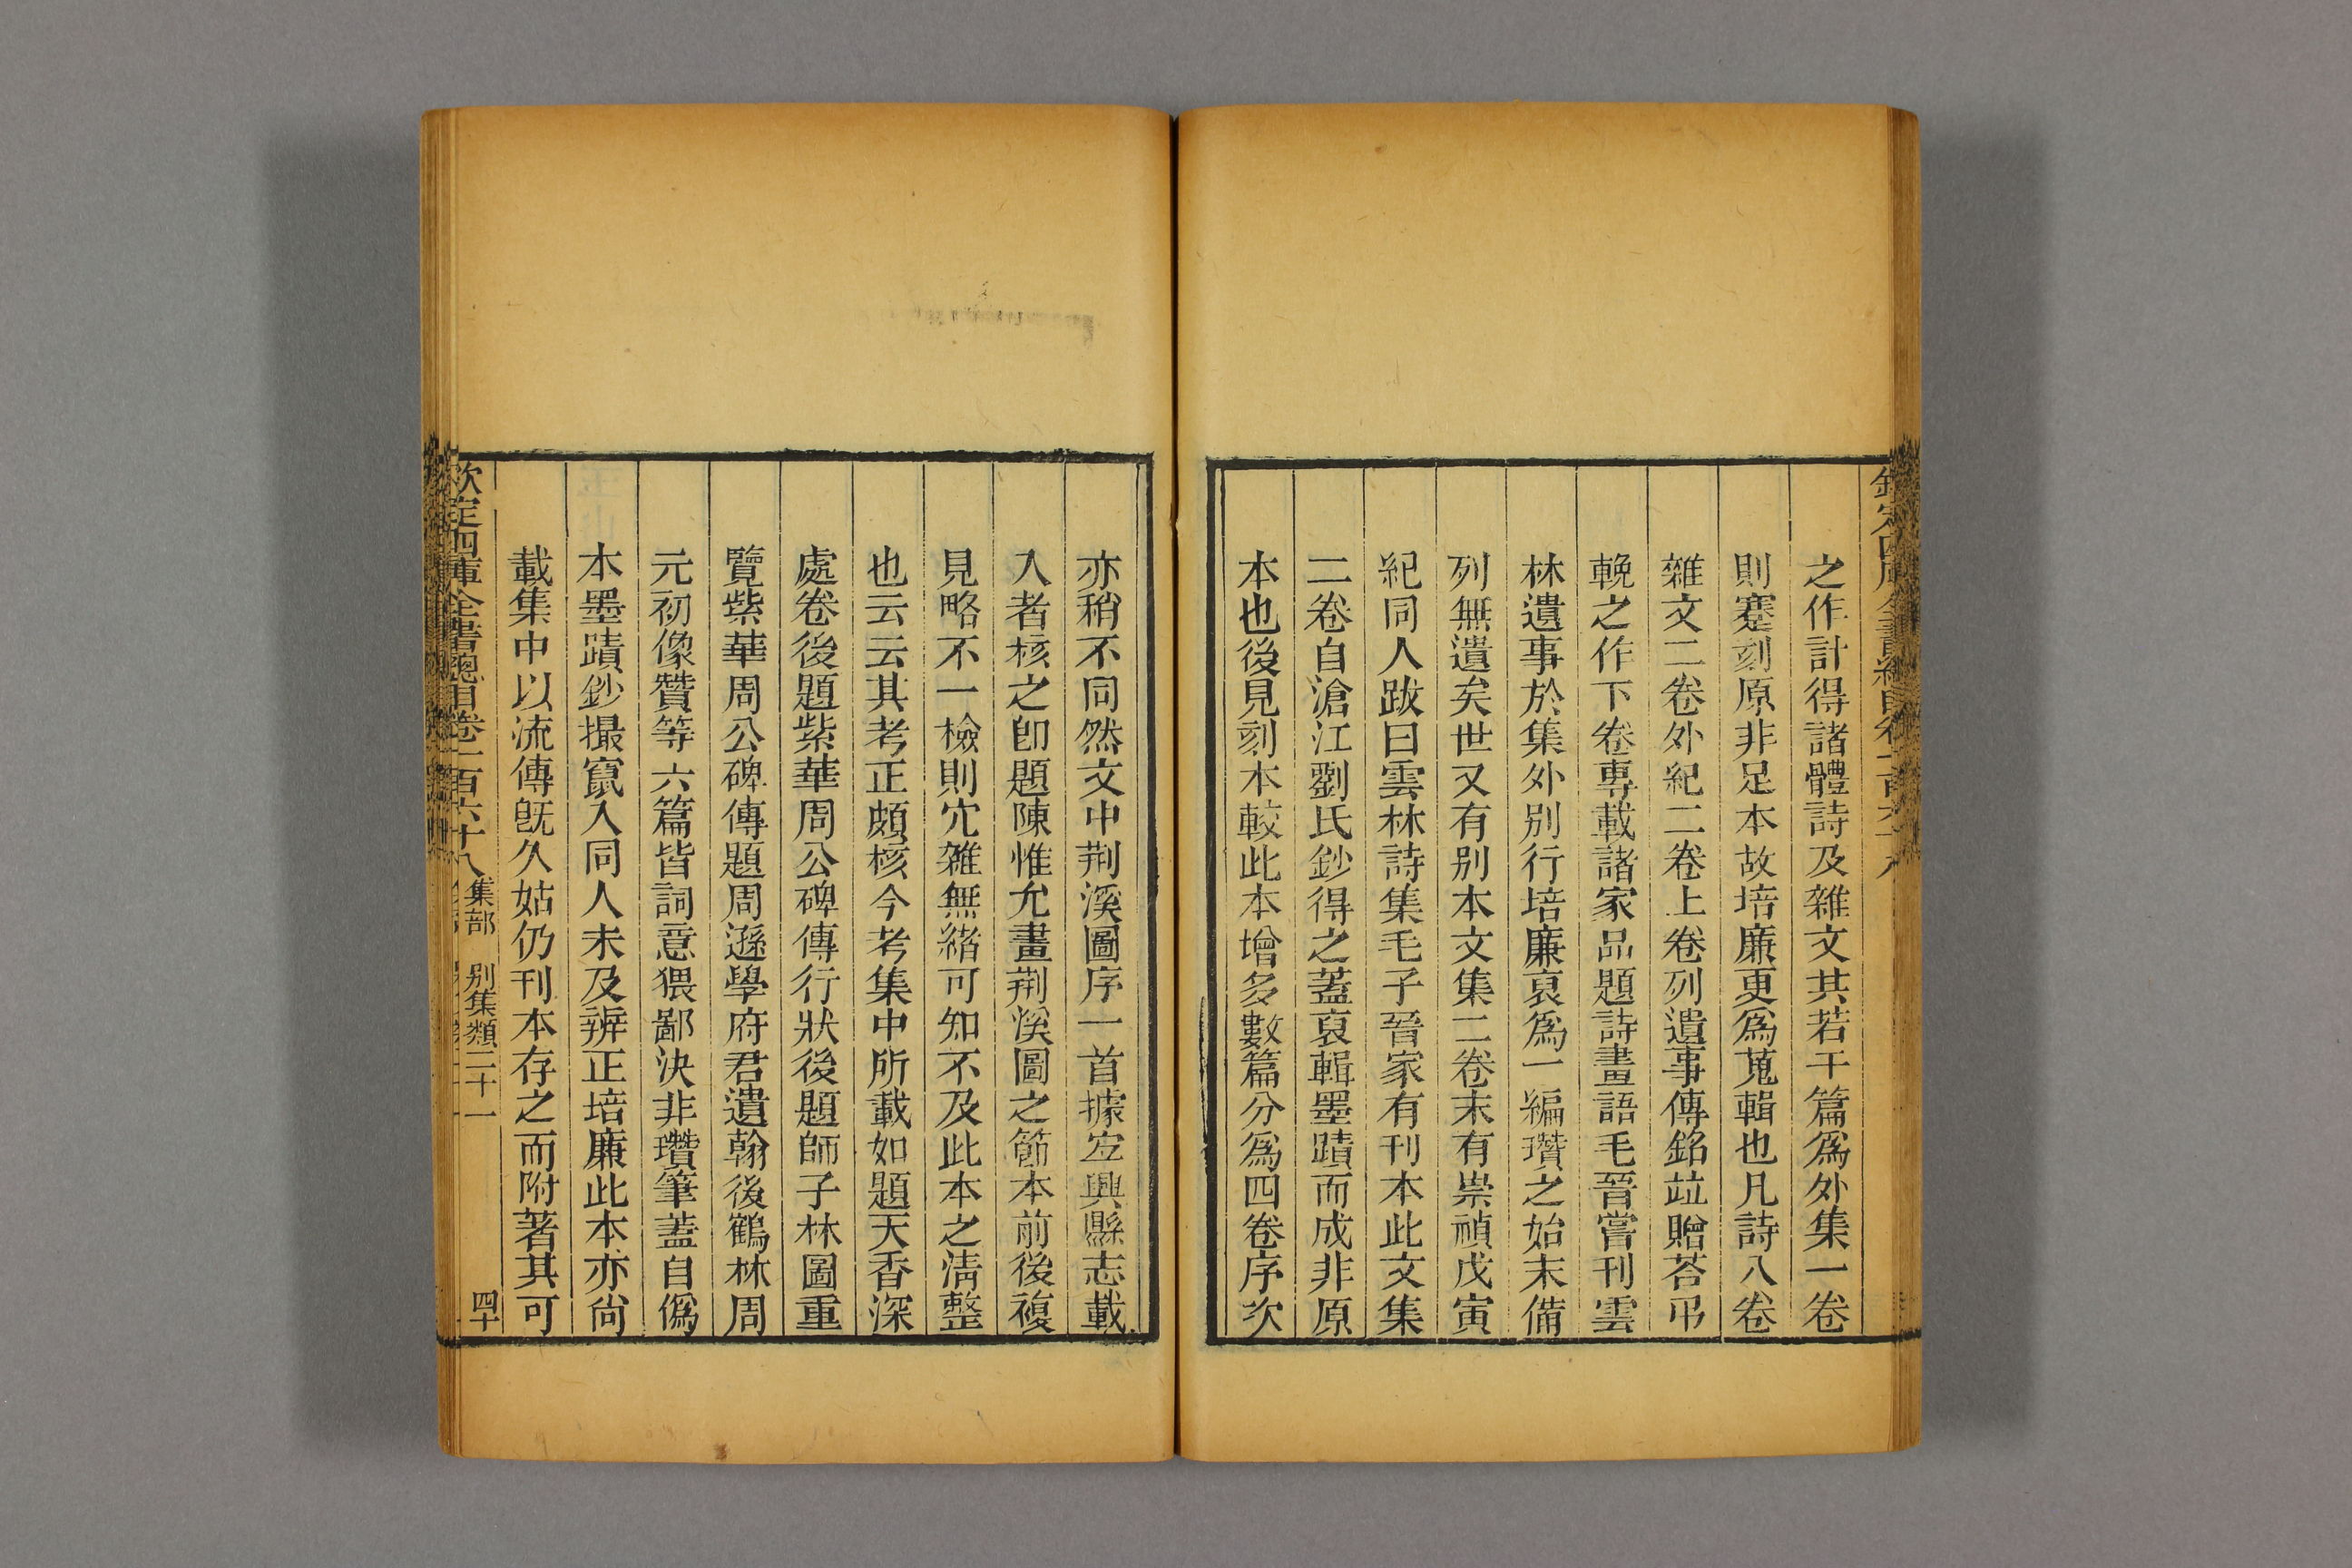 之作計得諸體詩及雜文共若干篇爲外集一卷
則蹇刻原非足本故培廉更爲蒐輯也凡詩八卷
雜文二卷外紀二卷上卷列遺事傳銘竝贈荅弔
輓之作下卷專載諸家品題詩畫語毛晉嘗刊雲
林遺事於集外别行培廉裒爲一編瓚之始末備
列無遺矣世又有别本文集二卷末有崇禎戊寅
紀同人跋曰雲林詩集毛子晉家有刊本此文集
二卷自滄江劉氏鈔得之蓋裒輯墨蹟而成非原
本也後見刻本較此本增多數篇分爲四卷序次
亦稍不同然文中荆溪圖序一首據宐興縣志載
入者核之卽題陳惟允畫荆溪圖之節本前後複
見略不一檢則宂雜無緒可知不及此本之清整
也云云其考正頗核今考集中所載如題天香深
處卷後題紫華周公碑傳行狀後題師子林圖重
覽紫華周公碑傳題周遜學府君遺翰後鶴林周
元初像贊等六篇皆詞意猥鄙決非瓚筆蓋自僞
本墨蹟鈔撮竄入同人未及辨正培廉此本亦尙
載集中以流傳旣久姑仍刊本存之而附著其可
欽定四庫全書總目卷一百六十八 集部 别集類二十一 四十